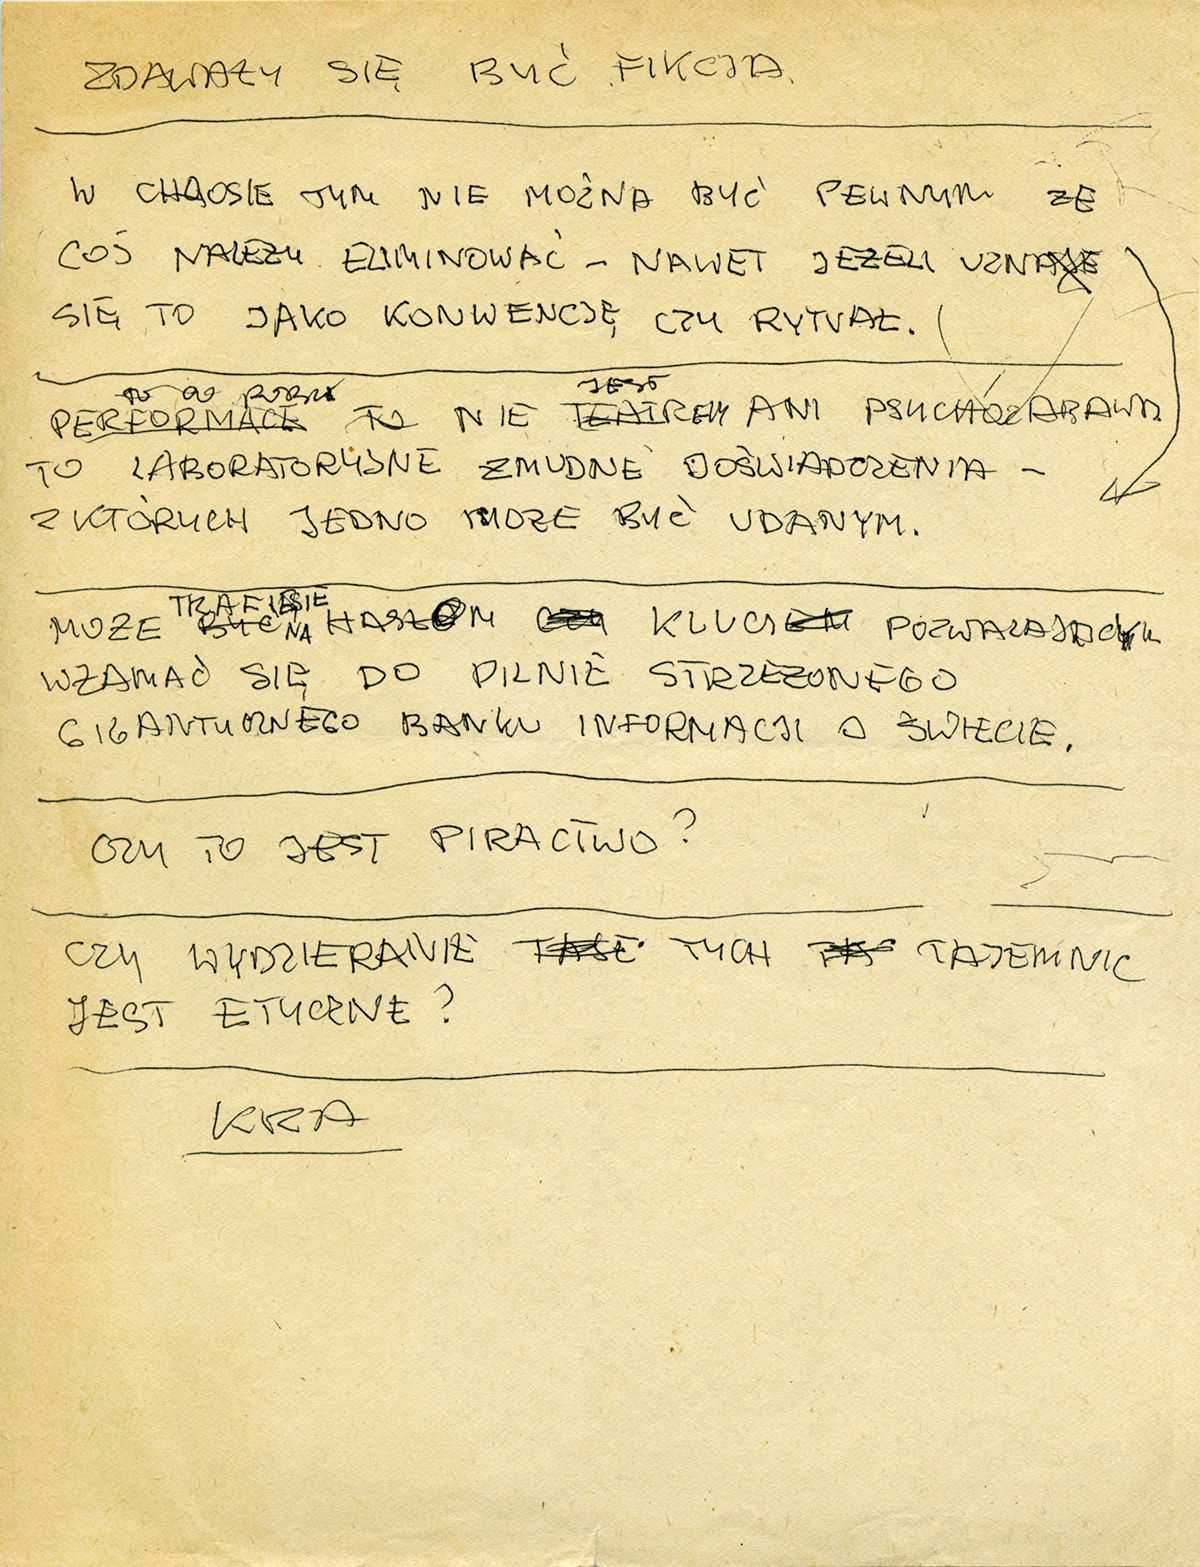 ZDAWAŁY SIĘ BYĆ FIKCJĄ.
W CHAOSIE TYM NIE MOŻNA BYĆ PEWNYM ŻE
COŚ NALEŻY ELIMINOWAĆ – NAWET JEŻELI UZNAJE
SIĘ TO JAKO KONWENCJĘ CZY RYTUAŁ.
TO CO ROBIĘ JEST
PERFORMACE TO NIE TEATREM ANI PSYCHOZABAWĄ
TO LABORATORYJNE ŻMUDNE DOŚWIADCZENIA –
Z KTÓRYCH JEDNO MOŻE BYĆ UDANYM.
TRAFI SIĘ
MOŻE BYĆ NA HASŁOM CZY KLUCZEM POZWALAJĄCYM
WŁAMAĆ SIĘ DO PILNIE STRZEŻONEGO
GIGANTYCZNEGO BANKU INFORMACJI O ŚWIECIE.
CZY TO JEST PIRACTWO?
CZY WYDZIERANIE TYCH TAJEMNIC
JEST ETYCZNE?
KRA